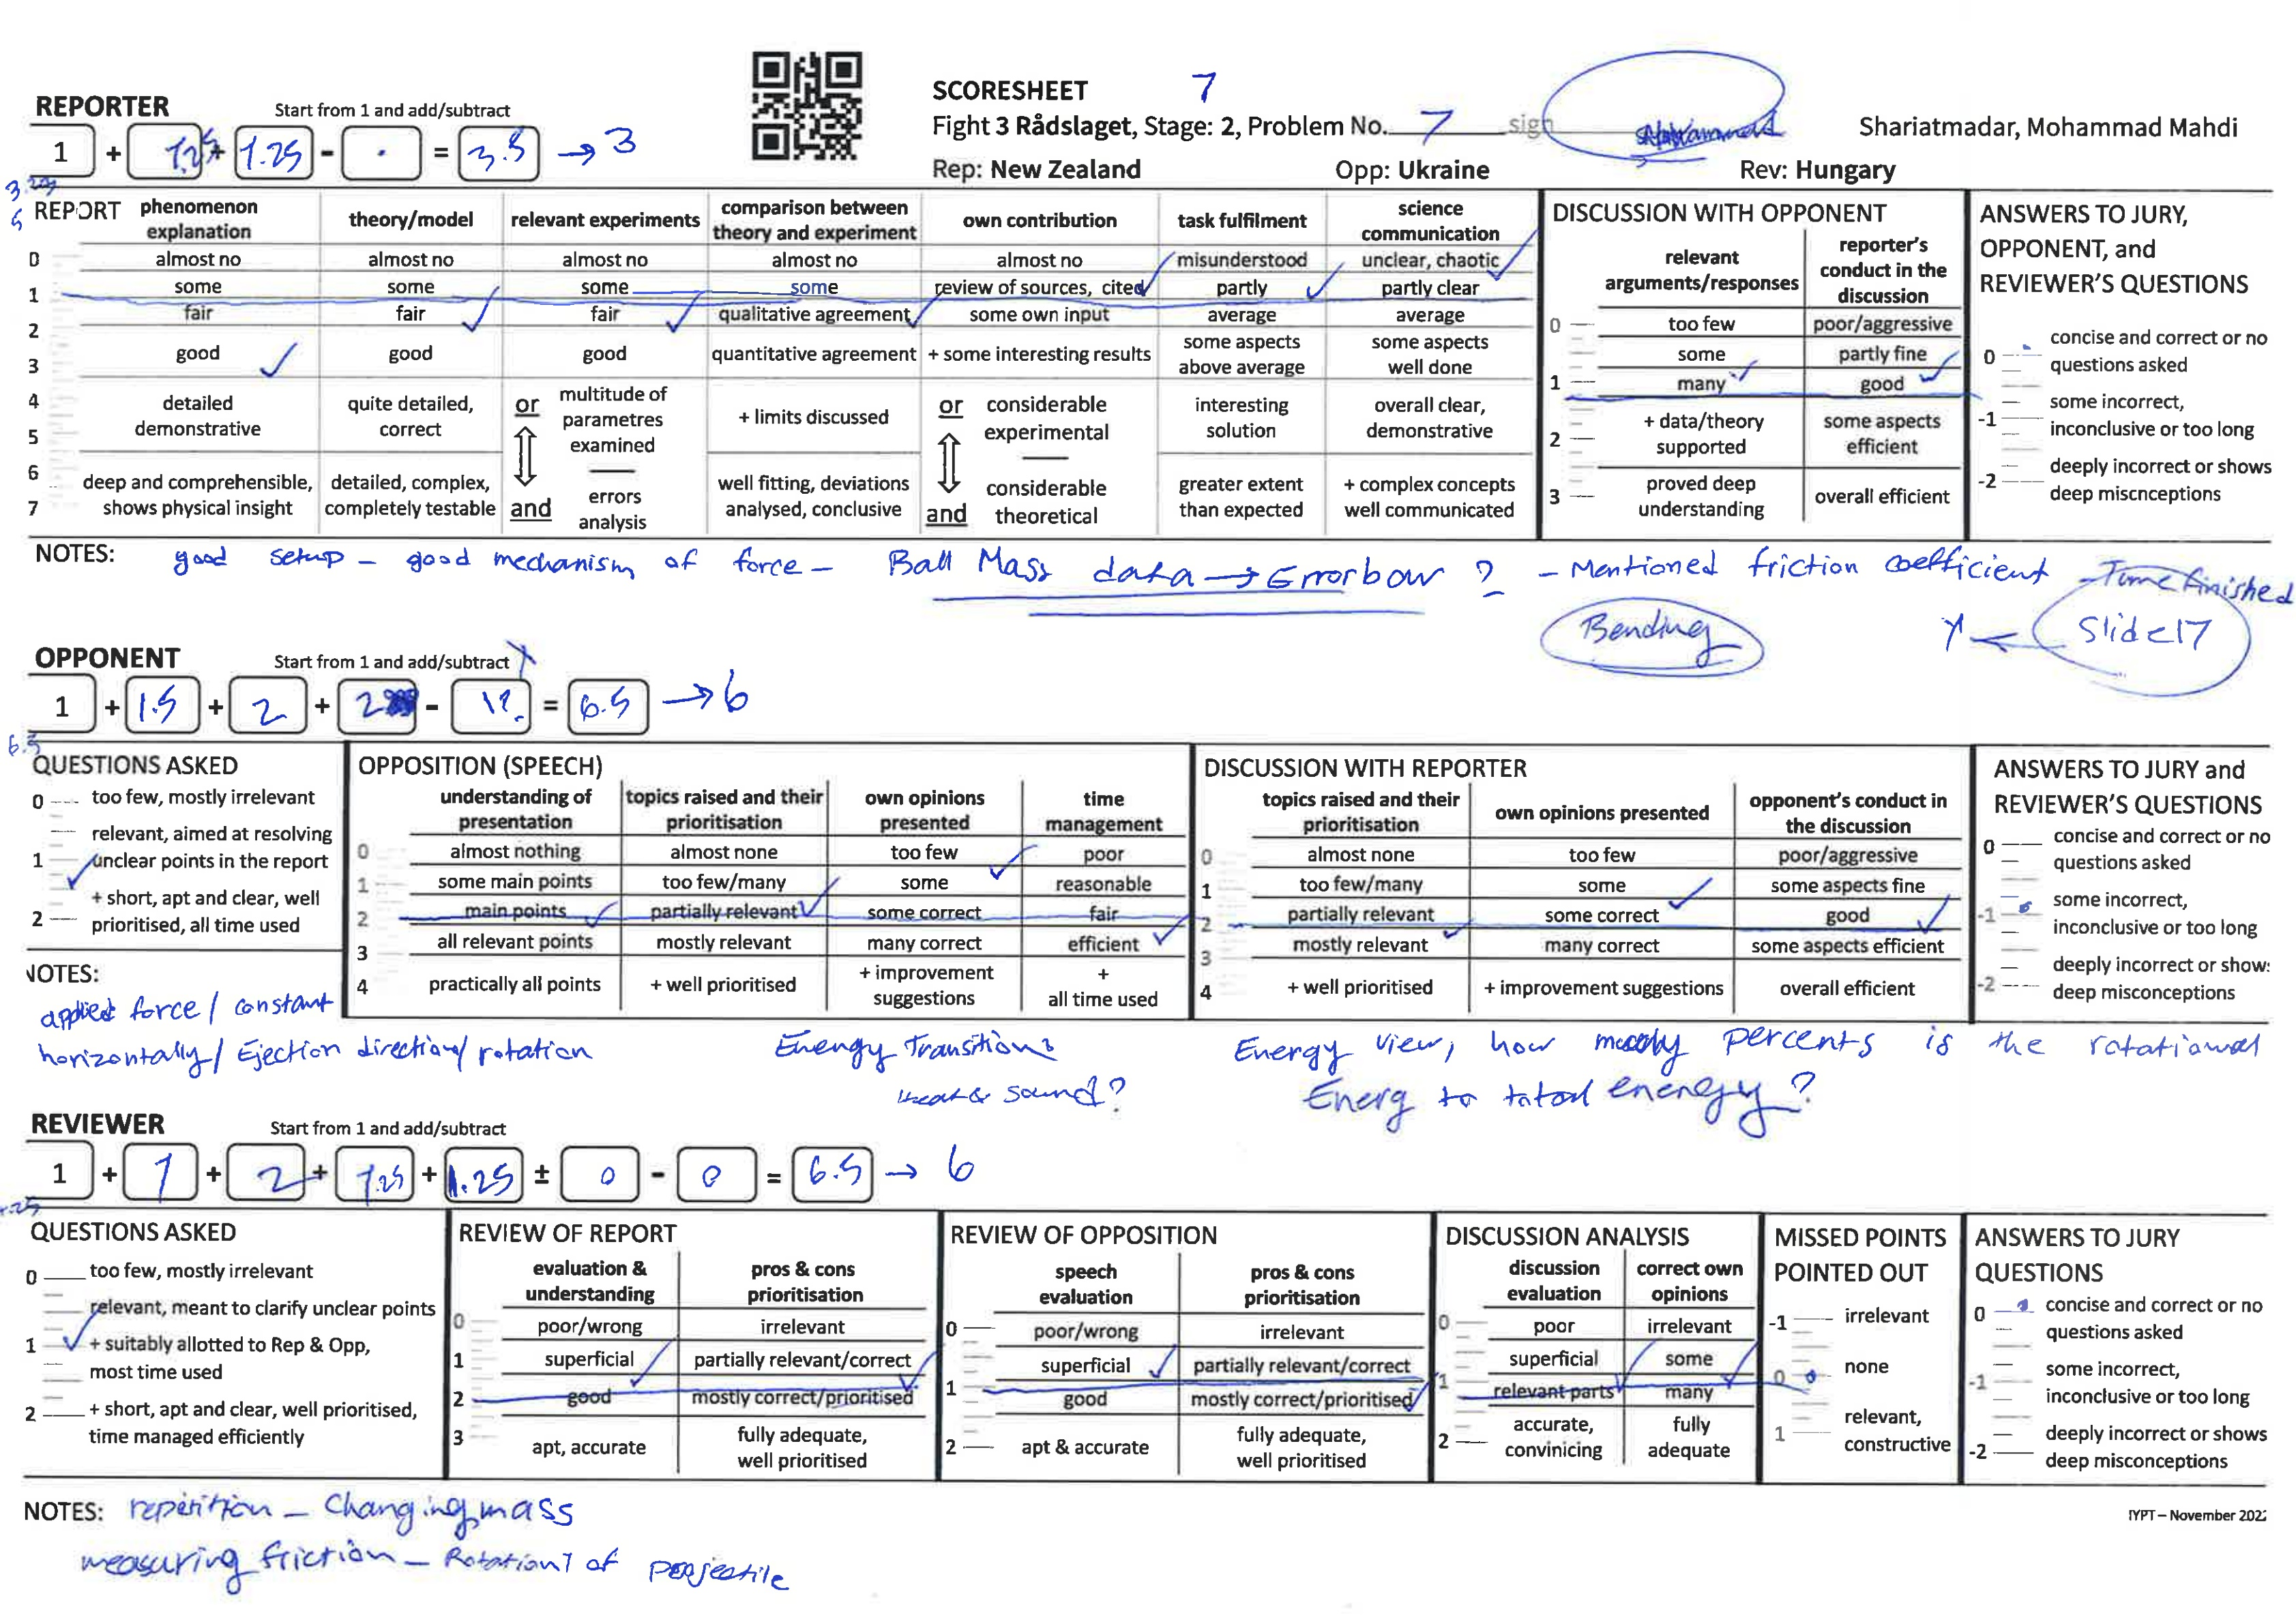 SCORESHEET 7
REPORTER Start from 1 and add/subtract
Fight 3 Rådslaget, Stage: 2, Problem No. 7 sign Shariatmadar, Mohammad Mahdi
1 + 1.25 + 1.25 - . = 3.5 → 3
Rep: New Zealand Opp: Ukraine Rev: Hungary
REPORT
phenomenon explanation
theory/model
relevant experiments
comparison between theory and experiment
own contribution
task fulfilment
science communication
0 almost no almost no almost no almost no almost no misunderstood unclear, chaotic
1 some some some some review of sources, cited partly partly clear
2 fair fair fair qualitative agreement some own input average average
3 good good good quantitative agreement + some interesting results some aspects above average some aspects well done
4
5
detailed demonstrative
quite detailed, correct
or
multitude of parametres examined
+ limits discussed
or
considerable experimental
interesting solution
overall clear, demonstrative
6
7
deep and comprehensible, shows physical insight
detailed, complex, completely testable
and
errors analysis
well fitting, deviations analysed, conclusive
and
considerable theoretical
greater extent than expected
+ complex concepts well communicated
DISCUSSION WITH OPPONENT
relevant arguments/responses
reporter's conduct in the discussion
0 too few poor/aggressive
some partly fine
1 many good
2 + data/theory supported some aspects efficient
3 proved deep understanding overall efficient
ANSWERS TO JURY,
OPPONENT, and
REVIEWER'S QUESTIONS
0 concise and correct or no
questions asked
-1 some incorrect,
inconclusive or too long
-2 deeply incorrect or shows
deep miscnceptions
NOTES: good setup - good mechanism of force - Ball Mass data → Errorbow ? - Mentioned friction coefficient - Time finished
Bending
Slide 17
OPPONENT Start from 1 and add/subtract
1 + 1.5 + 2 + 2 - 1?. = 6.5 → 6
6.5
QUESTIONS ASKED
0 too few, mostly irrelevant
relevant, aimed at resolving
1 unclear points in the report
+ short, apt and clear, well
2 prioritised, all time used
OPPOSITION (SPEECH)
understanding of presentation
topics raised and their prioritisation
own opinions presented
time management
0 almost nothing almost none too few poor
1 some main points too few/many some reasonable
2 main points partially relevant some correct fair
3 all relevant points mostly relevant many correct efficient
4 practically all points + well prioritised + improvement suggestions + all time used
DISCUSSION WITH REPORTER
topics raised and their prioritisation
own opinions presented
opponent's conduct in the discussion
0 almost none too few poor/aggressive
1 too few/many some some aspects fine
2 partially relevant some correct good
3 mostly relevant many correct some aspects efficient
4 + well prioritised + improvement suggestions overall efficient
ANSWERS TO JURY and
REVIEWER'S QUESTIONS
0 concise and correct or no
questions asked
-1 some incorrect,
inconclusive or too long
-2 deeply incorrect or show:
deep misconceptions
NOTES:
applied force / constant
horizontally / Ejection direction / rotation
Energy Transitions
Heat & sound?
Energy view, how many percents is the rotational
Energ to total energy?
REVIEWER Start from 1 and add/subtract
1 + 1 + 2 + 1.25 + 1.25 ± 0 - 0 = 6.5 → 6
QUESTIONS ASKED
0 too few, mostly irrelevant
relevant, meant to clarify unclear points
1 + suitably allotted to Rep & Opp,
most time used
2 + short, apt and clear, well prioritised,
time managed efficiently
REVIEW OF REPORT
evaluation & understanding
pros & cons prioritisation
0 poor/wrong irrelevant
1 superficial partially relevant/correct
2 good mostly correct/prioritised
3 apt, accurate fully adequate, well prioritised
REVIEW OF OPPOSITION
speech evaluation
pros & cons prioritisation
0 poor/wrong irrelevant
superficial partially relevant/correct
1 good mostly correct/prioritised
2 apt & accurate fully adequate, well prioritised
DISCUSSION ANALYSIS
discussion evaluation
correct own opinions
0 poor irrelevant
superficial some
1 relevant parts many
2 accurate, convinicing fully adequate
MISSED POINTS
POINTED OUT
-1 irrelevant
0 none
1 relevant, constructive
ANSWERS TO JURY
QUESTIONS
0 concise and correct or no
questions asked
-1 some incorrect,
inconclusive or too long
-2 deeply incorrect or shows
deep misconceptions
NOTES: repetition - Changing mass
measuring friction - Rotation of perjectile
IYPT – November 202